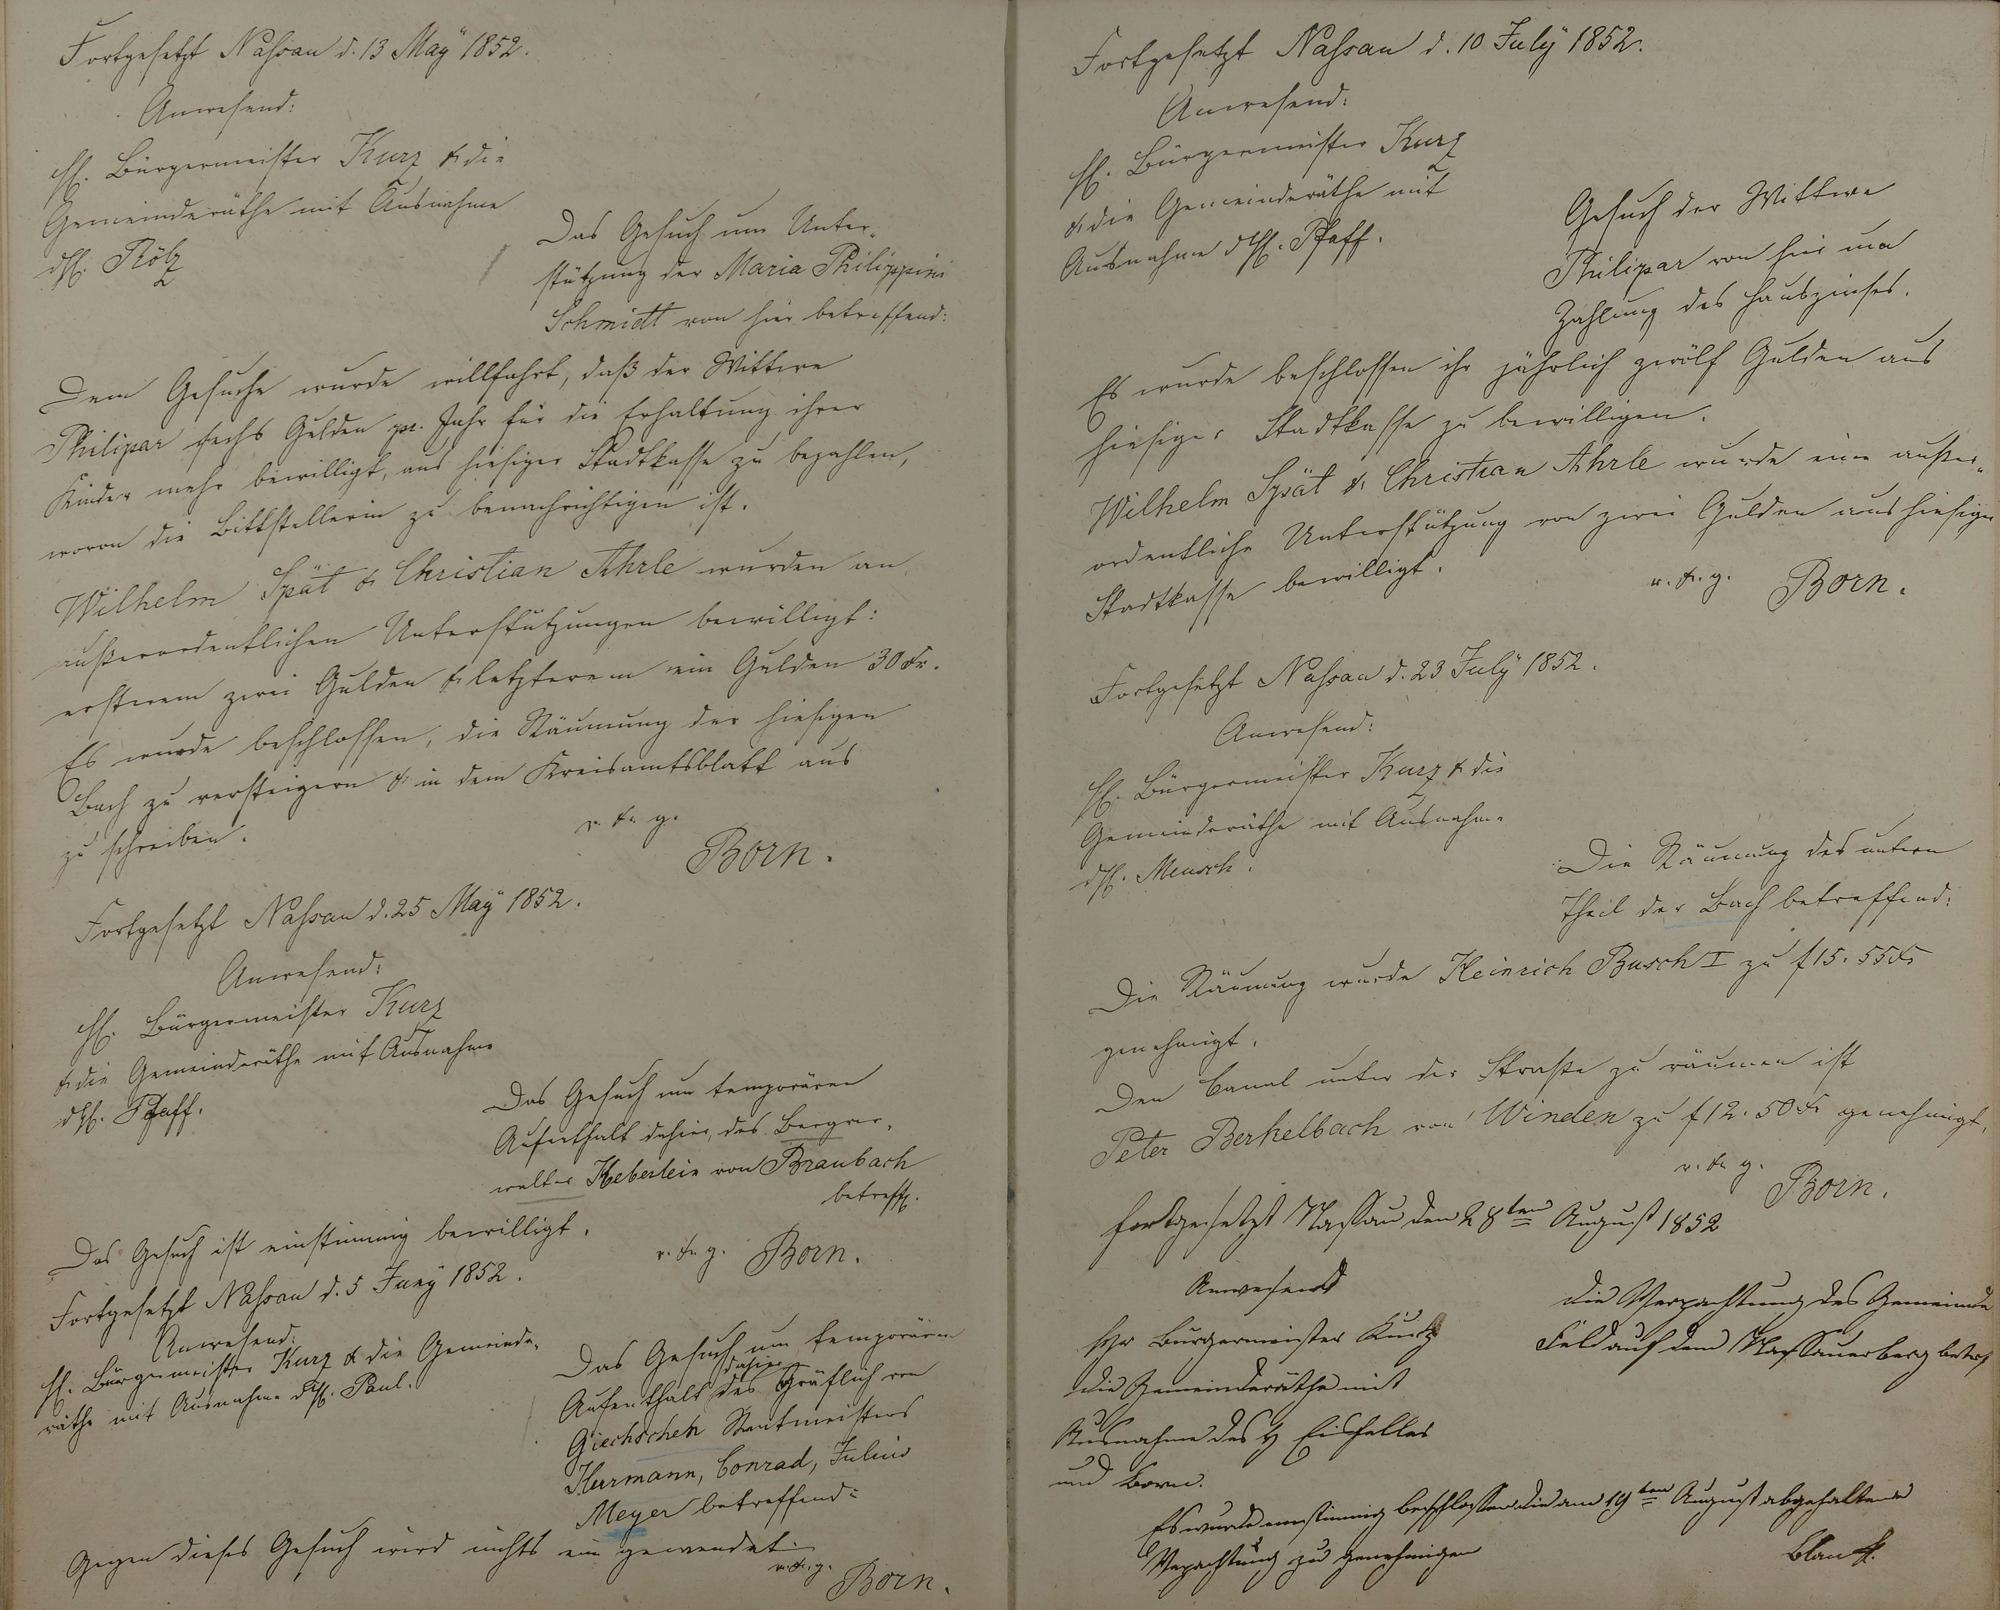 Fortgesetzt Nassau d. 13 May 1852.
Anwesend:
H. Bürgermeister Kurz & die
Gemeinderäthe mit Ausnahme
dH. Rölz
Das Gesuch um Unter-
stützung der Maria Philippini
Schmidt von hier betreffend:
Dem Gesuche wurde willfahrt, daß der Wittwe
Philipar sechs Gulden pr. Jahr für die Erhaltung ihrer
Kinder mehr bewilligt, aus hiesiger Stadtkasse zu bezahlen,
wovon die Bittstellerin zu benachrichtigen ist.
Wilhelm Spät & Christian Ahrle wurden an
außerordentlichen Unterstützungen bewilligt:
ersterem zwei Gulden & letzterem ein Gulden 30 Kr.
Es wurde beschlossen, die Räumung der hiesigen
Bach zu versteigern & in dem Kreisamtsblatt aus
zu schreiben.
v. & g.
Born.
Fortgesetzt Nassau d. 25 May 1852.
Anwesend:
H. Bürgermeister Kurz
& die Gemeinderäthe mit Ausnahme
dH. Pfaff.
Das Gesuch um temporären
Aufenthalt dahier, des Bergver-
walter Heberlein von Braubach
betreff.
Das Gesuch ist einstimmig bewilligt.
v. & g. Born.
Fortgesetzt Nassau d. 5 Juny 1852.
Anwesend:
H. Bürgermeister Kurz & die Gemeinde-
räthe mit Ausnahme dH. Paul.
Das Gesuch um temporären
dahier
Aufenthalt des Gräflich von
Giechschen Rentmeisters
Herrmann, Conrad, Julius
Meyer betreffend:
Gegen dieses Gesuch wird nichts ein gewendet.
v. & g. Born.
Fortgesetzt Nassau d. 10 July 1852.
Anwesend:
H. Bürgermeister Kurz
& die Gemeinderäthe mit
Ausnahme dH. Pfaff.
Gesuch der Wittwe
Philipar von hier um
Zahlung des Hauszinses.
Es wurde beschlossen ihr jährlich zwölf Gulden aus
hiesiger Stadtkasse zu bewilligen.
Wilhelm Spät & Christian Ahrle wurde eine außer-
ordentliche Unterstützung von zwei Gulden aus hiesiger
Stadtkasse bewilligt.
v. & g. Born.
Fortgesetzt Nassau d. 23 July 1852.
Anwesend:
H. Bürgermeister Kurz & die
Gemeinderäthe mit Ausnahme
dH. Meusch.
Die Räumung des untern
Theil der Bach betreffend:
Die Räumung wurde Heinrich Busch I zu f 15. 55 Kr
genehmigt.
Den Canal unter der Straße zu räumen ist
Peter Berkelbach von Winden zu f 12. 50 Kr genehmigt.
v. & g.
Born.
Fortgesetzt Nassau den 28ten August 1852
Anwesend
Hr Bürgermeister Kurtz
die Gemeinderäthe mit
Ausnahme des H Eisfeller
und Born.
die Verpachtung des Gemeinde
Feld auf dem Nassauerberg betrf
Es wurde einstimmig beschlossen die am 19ten August abgehaltene
Verpachtung zu genehmigen